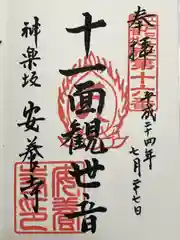 奉拝
平成二十四年
七月二十七日
十一面観世音
神楽坂
安養寺